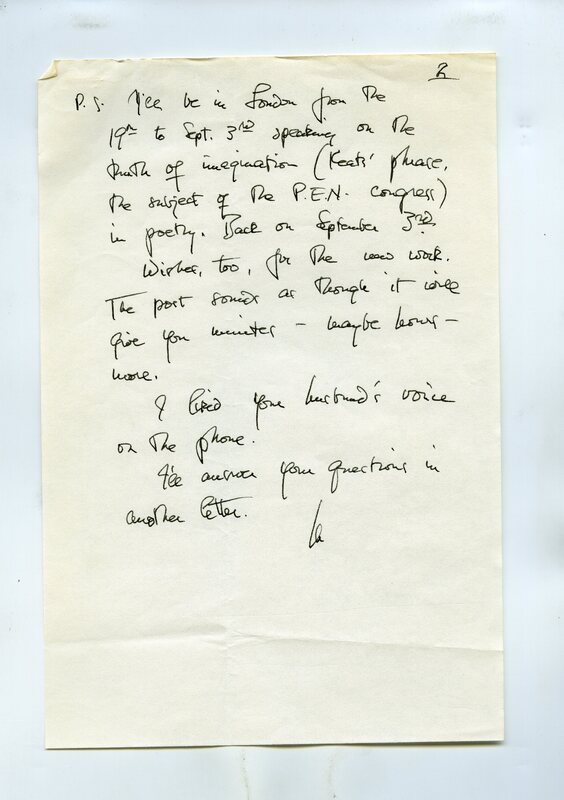 2
P.S. I'll be in London from the
19th to Sept. 3rd speaking on the
truth of imagination (Keats' phrase,
the subject of the P.E.N. congress)
in poetry. Back on September 3rd.
Wishes, too, for the new work.
The post sounds as though it will
give you minutes — maybe hours —
more.
I liked your husband's voice
on the phone.
I'll answer your questions in
another letter.